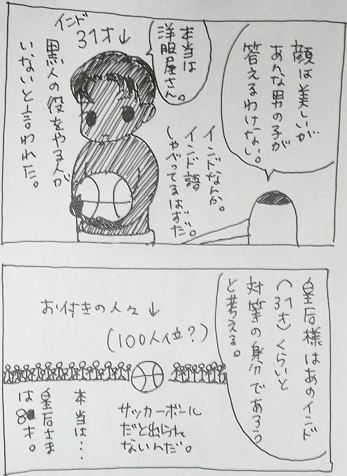 顔は美しいが
あんな男の子が
答えるわけない。
インド
31才↓
本当は
洋服屋さん。
インドなんか。
インド語
しゃべってるはずだ。
黒人の役をやる人が
いないと言われた。
皇后様はあのインド
(31才)くらいと
対等の身分であろう
と考える。
お付きの人々↓
(100人位?)
サッカーボール
だと出られ
ないんだ。
本当は…
皇后さま
は8才。